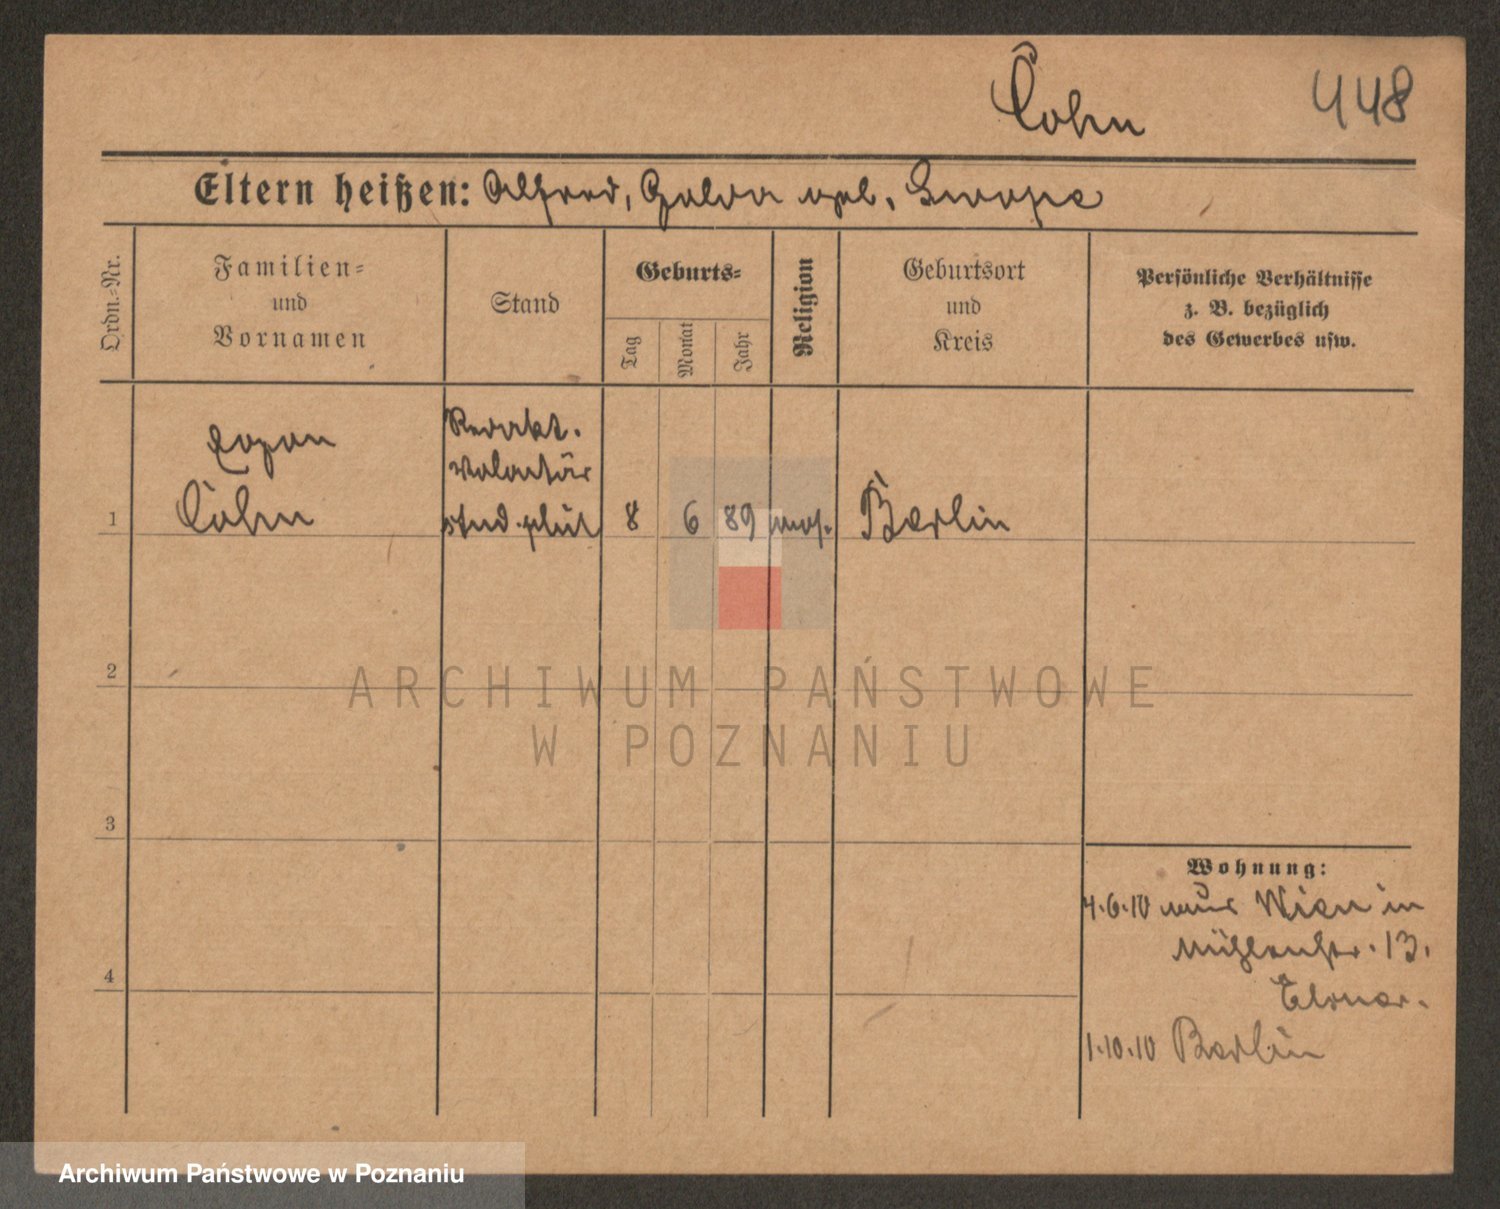 Cohn 448
Eltern heißen: Alfred, geb.
Ordn.-Nr.
Familien-
und
Vornamen
Stand
Geburts-
Tag
Monat
Jahr
Religion
Geburtsort
und
Kreis
Persönliche Verhältnisse
z. B. bezüglich
des Gewerbes usw.
Redakt.
Volontär
1 Cohn stud. phil 8 6 89 mos. Berlin
2
3
4
Wohnung:
4.6.10 aus Wien in
Mühlenstr. 13.
1.10.10 Berlin
ARCHIWUM PAŃSTWOWE
W POZNANIU
Archiwum Państwowe w Poznaniu